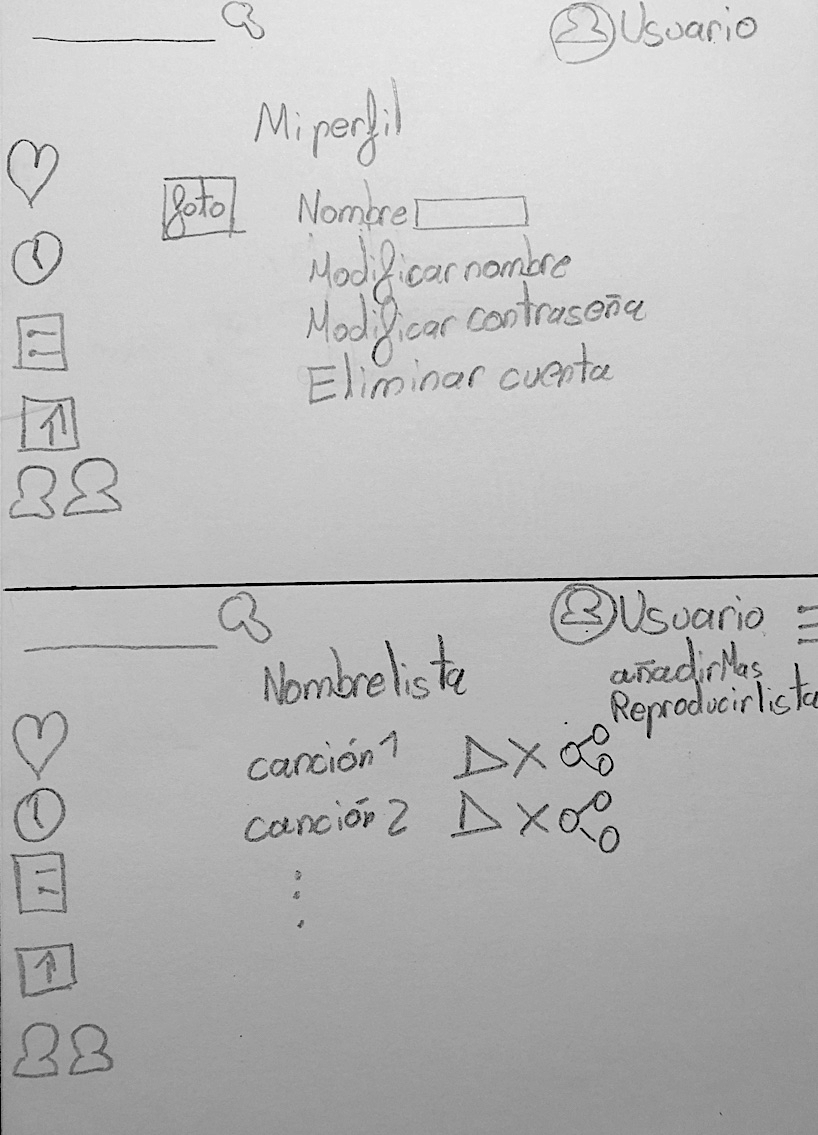 Usuario
Mi perfil
foto
Nombre
Modificar nombre
Modificar contraseña
Eliminar cuenta
Usuario
Nombre lista
añadir Mas
Reproducir lista
canción 1
canción 2